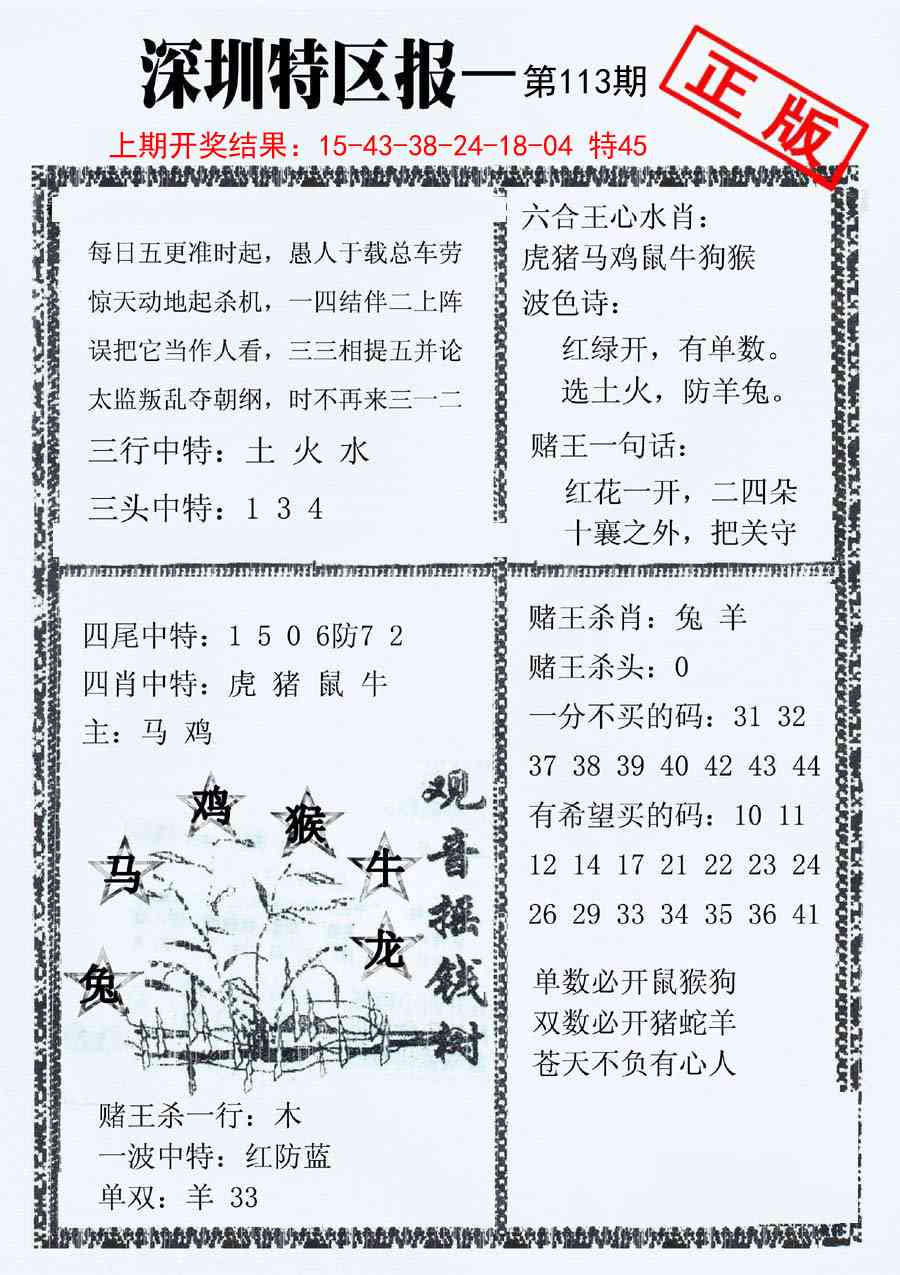 深圳特区报—第113期
正版
上期开奖结果：15-43-38-24-18-04 特45
每日五更准时起，愚人于载总车劳
惊天动地起杀机，一四结伴二上阵
误把它当作人看，三三相提五并论
太监叛乱夺朝纲，时不再来三一二
三行中特：土 火 水
三头中特：1 3 4
六合王心水肖：
虎猪马鸡鼠牛狗猴
波色诗：
红绿开，有单数。
选土火，防羊兔。
赌王一句话：
红花一开，二四朵
十襄之外，把关守
四尾中特：1 5 0 6防7 2
四肖中特：虎 猪 鼠 牛
主：马 鸡
鸡
猴
马
牛
龙
兔
观音摇钱树
赌王杀一行：木
一波中特：红防蓝
单双：羊 33
赌王杀肖：兔 羊
赌王杀头：0
一分不买的码：31 32
37 38 39 40 42 43 44
有希望买的码：10 11
12 14 17 21 22 23 24
26 29 33 34 35 36 41
单数必开鼠猴狗
双数必开猪蛇羊
苍天不负有心人